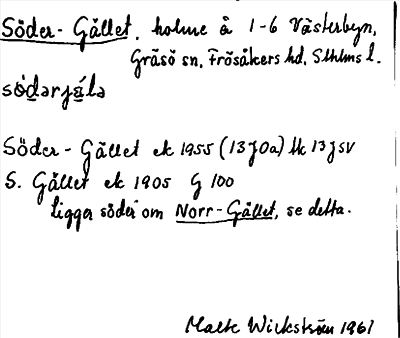 Söder-Gället, holme å 1-6 Västerbyn,
Gräsö sn, Frösåkers hd, Sthlms l.
Söder-Gället ek 1955 (13J0a) tk 13JSV
S. Gället ek 1905 G 100
Ligger söder om Norr-Gället, se detta.
Malte Wickström 1961